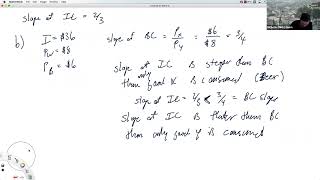 slope of IC = 2/3
b) I = $36
P_W = $8
P_B = $6
slope of BC = P_x / P_y = $6 / $8 = 3/4
slope of IC is steeper than BC
then only good X is consumed (Beer)
slope of IC = 2/3 < 3/4 = BC slope
slope of IC is flatter than BC
then only good Y is consumed